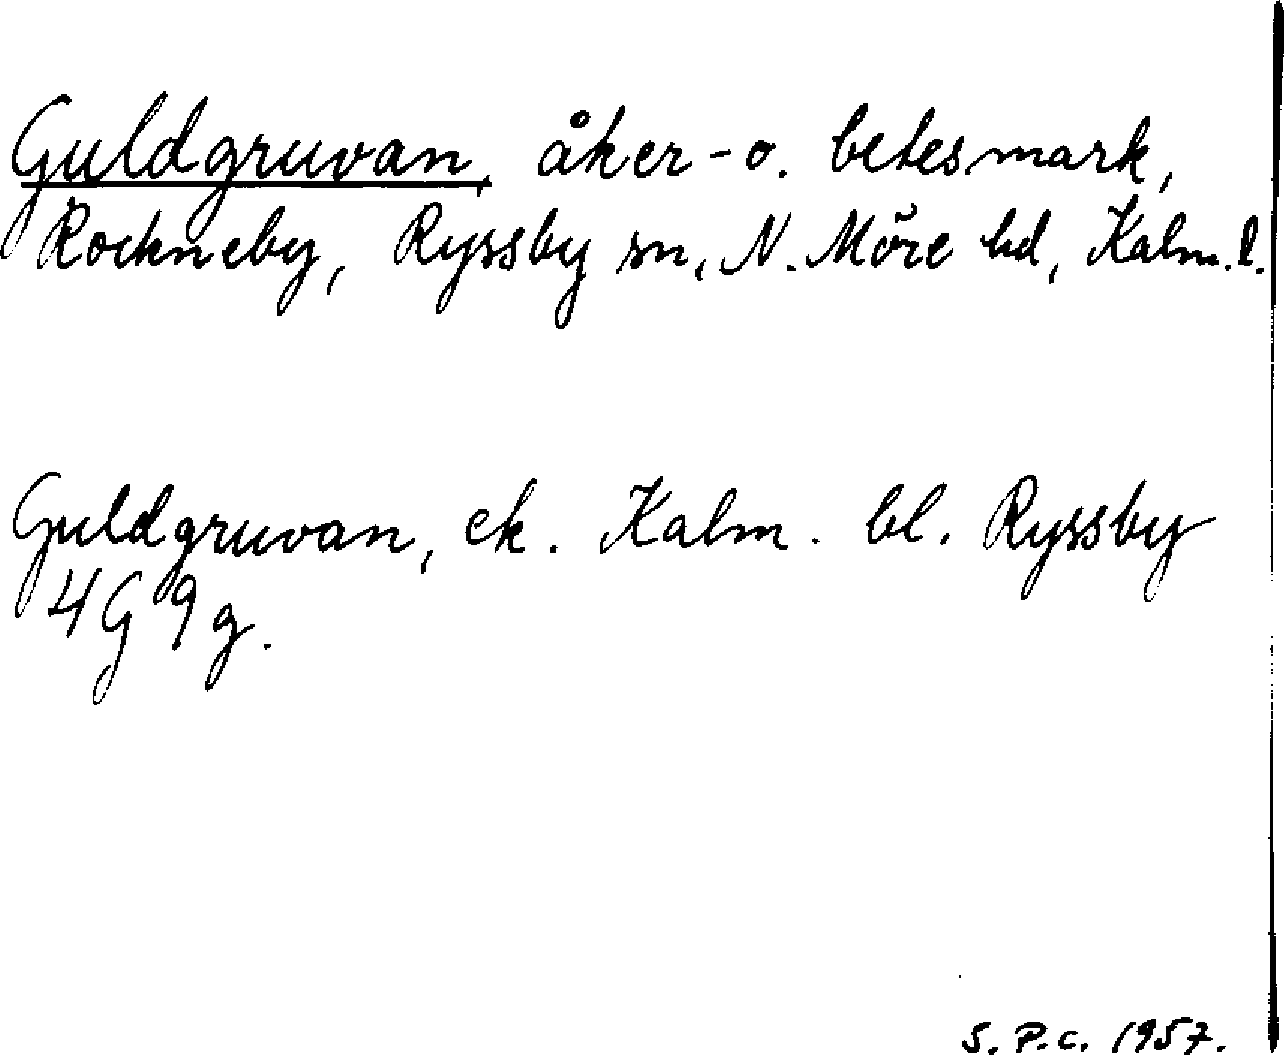 Guldgruvan, åker- o. betesmark,
Rockneby, Ryssby sn, N. Möre hd, Kalm. l.
Guldgruvan, ek. Kalm. bl. Ryssby
4G 9g.
S. P.c. 1957.